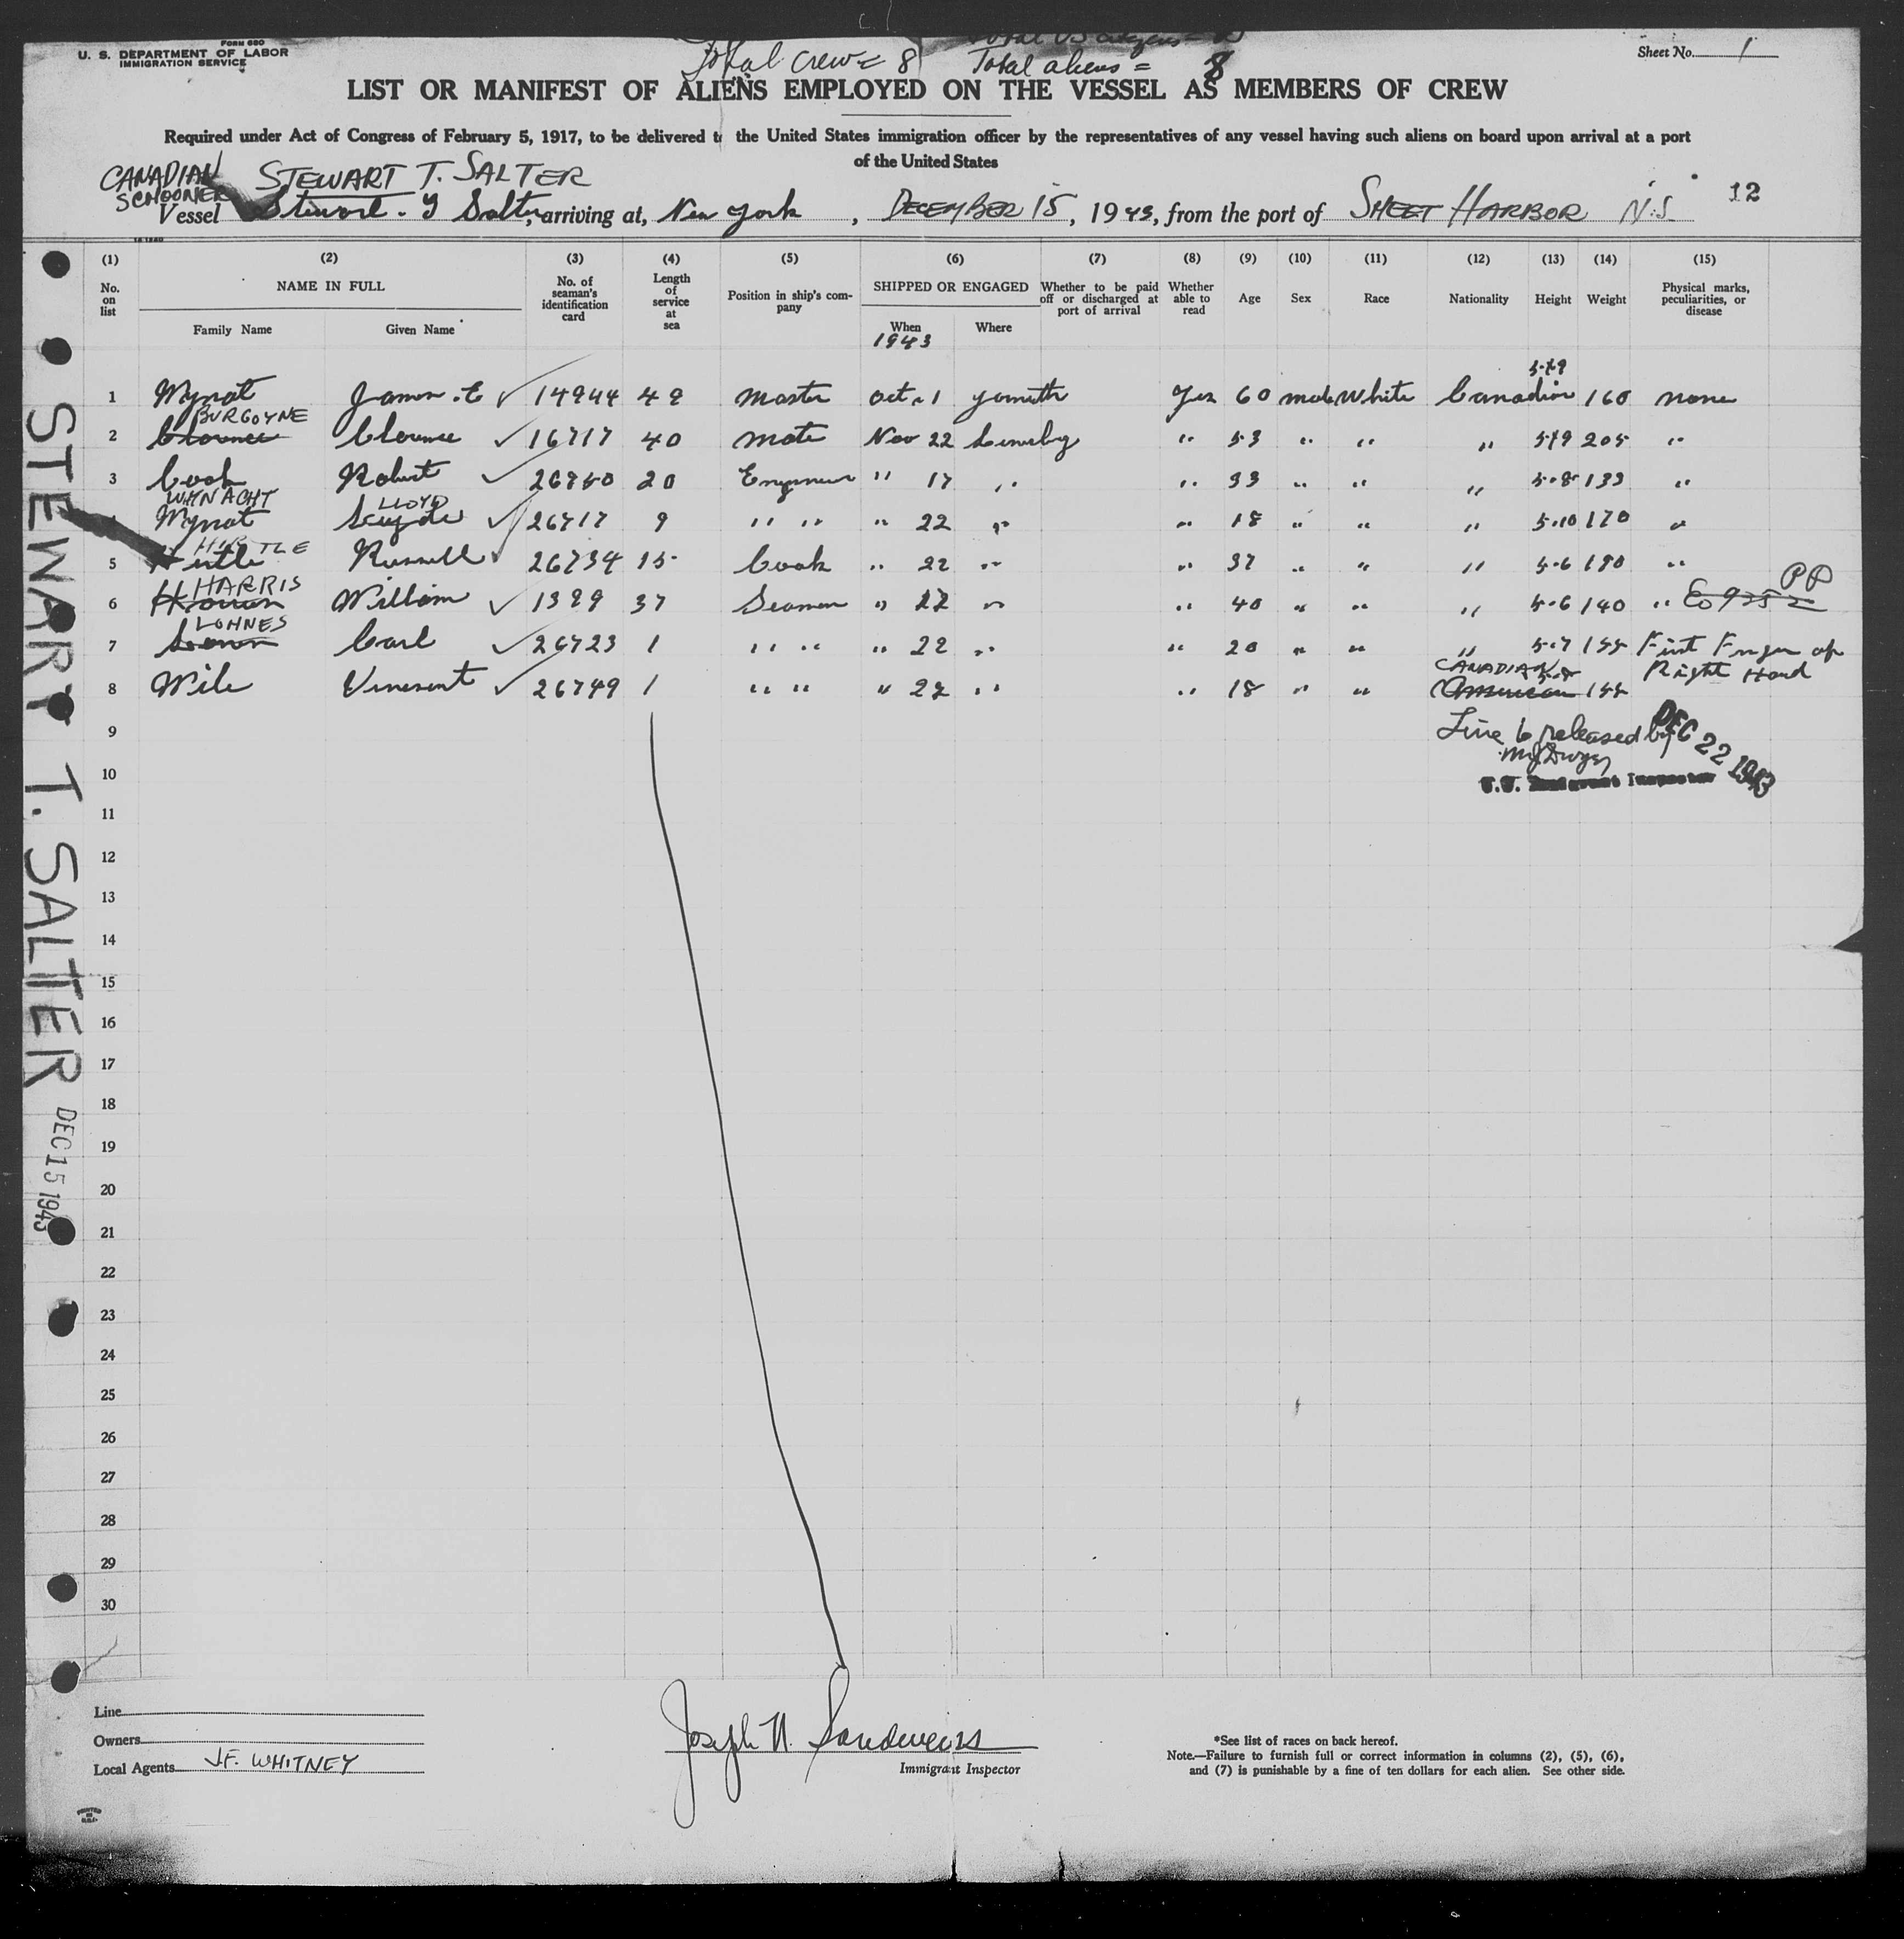 FORM 680
U. S. DEPARTMENT OF LABOR
IMMIGRATION SERVICE
Total crew = 8
Total aliens = 8
Sheet No. 1
LIST OR MANIFEST OF ALIENS EMPLOYED ON THE VESSEL AS MEMBERS OF CREW
Required under Act of Congress of February 5, 1917, to be delivered to the United States immigration officer by the representatives of any vessel having such aliens on board upon arrival at a port
of the United States
CANADIAN SCHOONER STEWART T. SALTER
Vessel Stewart. T Salter, arriving at, New York, DECEMBER 15, 1943, from the port of SHEET HARBOR N.S. 12
(1) (2) (3) (4) (5) (6) (7) (8) (9) (10) (11) (12) (13) (14) (15)
No. on list NAME IN FULL Family Name Given Name No. of seaman's identification card Length of service at sea Position in ship's company SHIPPED OR ENGAGED When 1943 Where Whether to be paid off or discharged at port of arrival Whether able to read Age Sex Race Nationality Height Weight Physical marks, peculiarities, or disease
5-79
1 Mynat James. E 14944 49 Master Oct. 1 Yarmouth Yes 60 male White Canadian 160 none
BURGOYNE
2 Clarence Clarence 16717 40 mate Nov 22 53 " " " 5-9 205 "
3 Cook Robert 20 Engineer " 17 " " 33 " " " 5-8 133 "
WHYNACHT LLOYD
Mynat 26717 9 " " " 22 " " 18 " " " 5-10 170 "
HIRTLE
5 Hirtle Russell 26734 15 Cook " 22 " " 37 " " " 5-6 190 "
HARRIS PP
6 William 1399 37 Seaman " 22 " " 40 " " " 5-6 140 "
LOHNES
7 Carl 26723 1 " " " 22 " " 20 " " " 5-7 155 First Finger of
CANADIAN Right Hand
8 Wile Vinesent 26749 1 " " " 22 " " 18 " " American 155
9
Line 6 released by
DEC 22 1943
10
11
12
13
14
15
16
17
18
19
20
21
22
23
24
25
26
27
28
29
30
STEWART T. SALTER
DEC 15 1943
Line
Owners
Local Agents J.F. WHITNEY
Joseph N. Sandweiss
Immigrant Inspector
*See list of races on back hereof.
Note.—Failure to furnish full or correct information in columns (2), (5), (6),
and (7) is punishable by a fine of ten dollars for each alien. See other side.